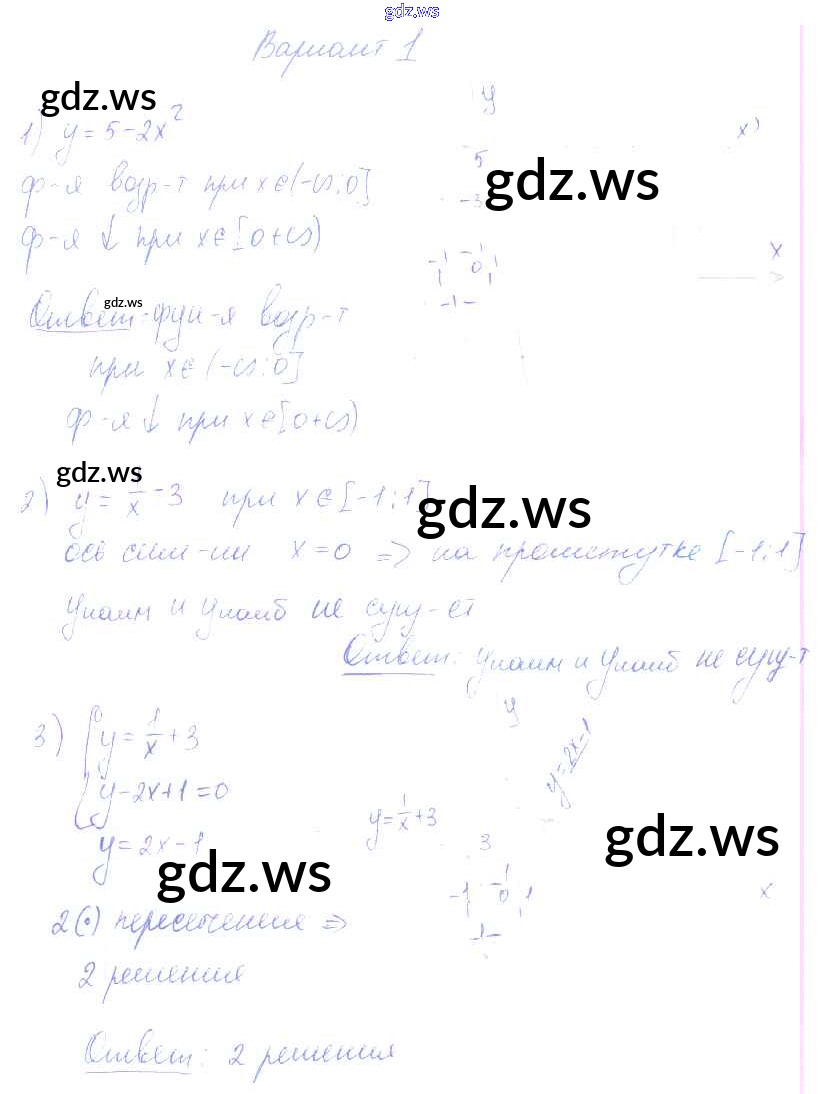 gdz.ws
Вариант 1
gdz.ws
1) y = 5 - 2x²
y
x
5
gdz.ws
ф-я возр-т при x ∈ (-∞; 0]
-3
ф-я ↓ при x ∈ [0 +∞)
-1 0 1
-1
x
gdz.ws
Ответ: фун-я возр-т
при x ∈ (-∞; 0]
ф-я ↓ при x ∈ [0 +∞)
gdz.ws
2) y = 1/x - 3 при x ∈ [-1; 1]
gdz.ws
ось сим-ии x = 0 => на промежутке [-1; 1]
yнаим и yнаиб не сущ-ет
Ответ: yнаим и yнаиб не сущ-т
3) { y = 1/x + 3
y - 2x + 1 = 0
y = 2x - 1
y
y = 2x - 1
y = 1/x + 3
gdz.ws
3
gdz.ws
-1 0 1
1
-1
x
2(•) пересечения =>
2 решения
Ответ: 2 решения